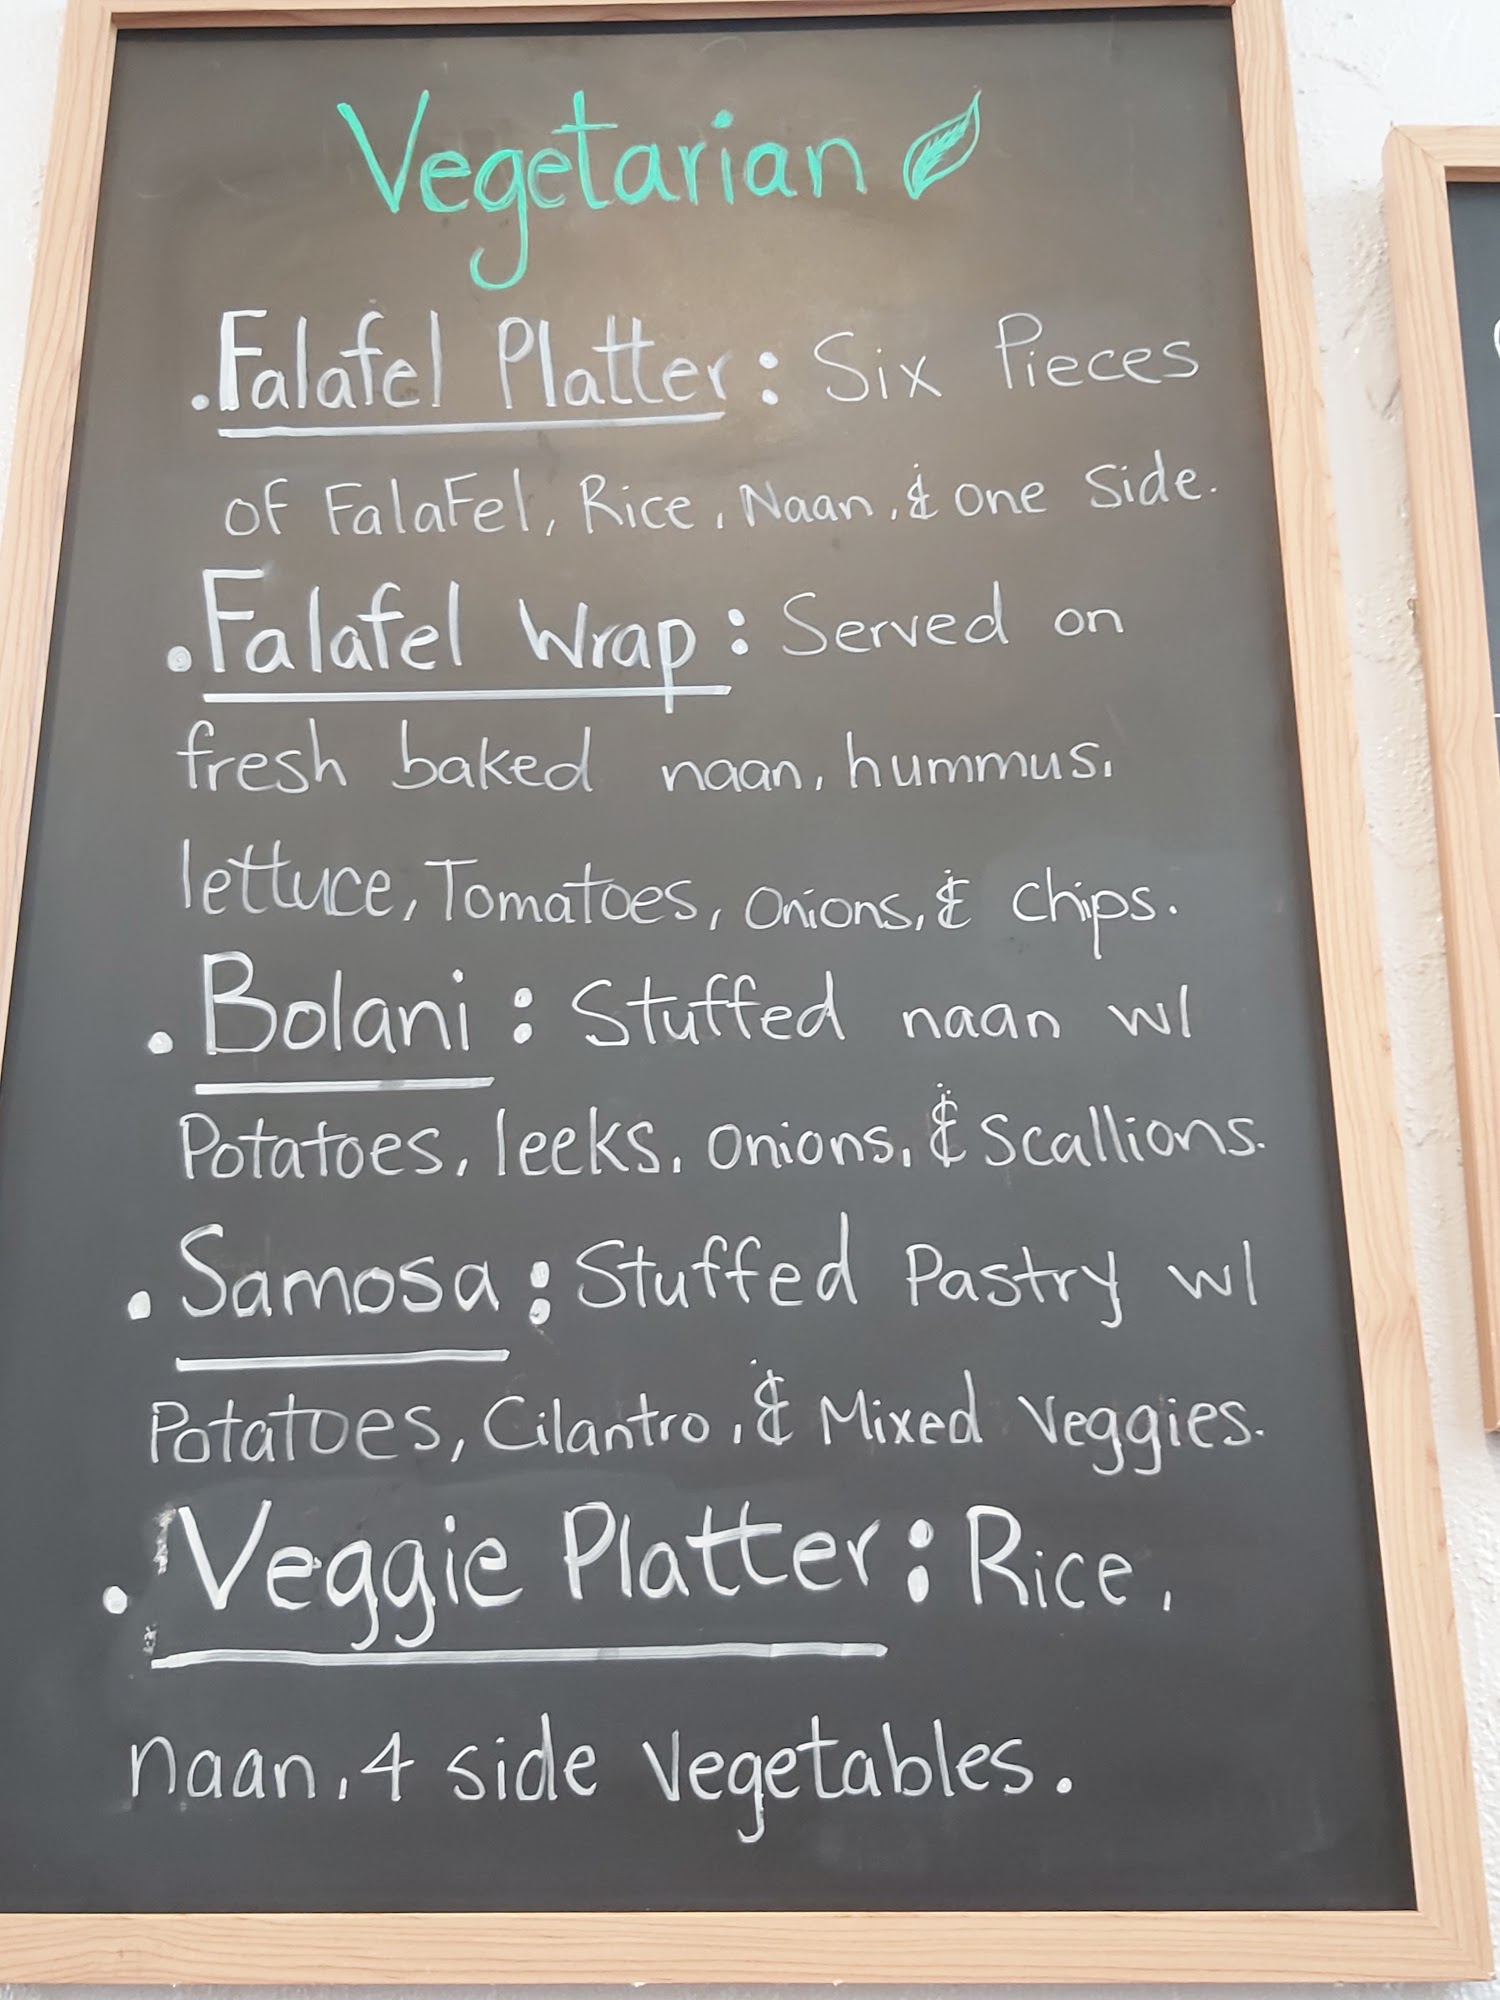 Vegetarian
. Falafel Platter : Six Pieces
of Falafel, Rice, Naan, & one Side.
. Falafel Wrap : Served on
fresh baked naan, hummus,
lettuce, Tomatoes, onions, & chips.
. Bolani : Stuffed naan w/
Potatoes, leeks, onions, & Scallions.
. Samosa : Stuffed Pastry w/
Potatoes, Cilantro, & Mixed Veggies.
. Veggie Platter : Rice,
naan, 4 side vegetables.